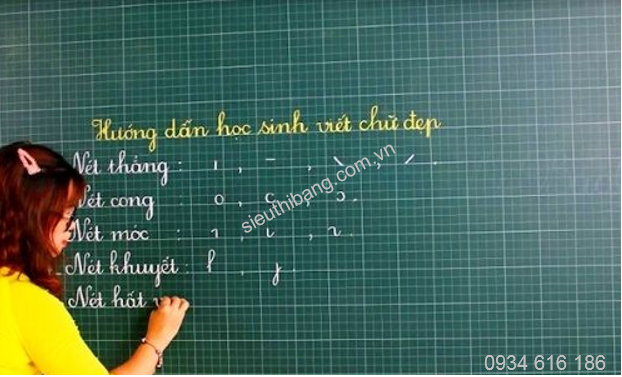 Hướng dẫn học sinh viết chữ đẹp
Nét thẳng : ı , – , \ , / .
Nét cong : o , c , ɔ .
Nét móc : ɿ , ɩ , ɿ .
Nét khuyết : l , j .
Nét hất v
sieuthibang.com.vn
0934 616 186